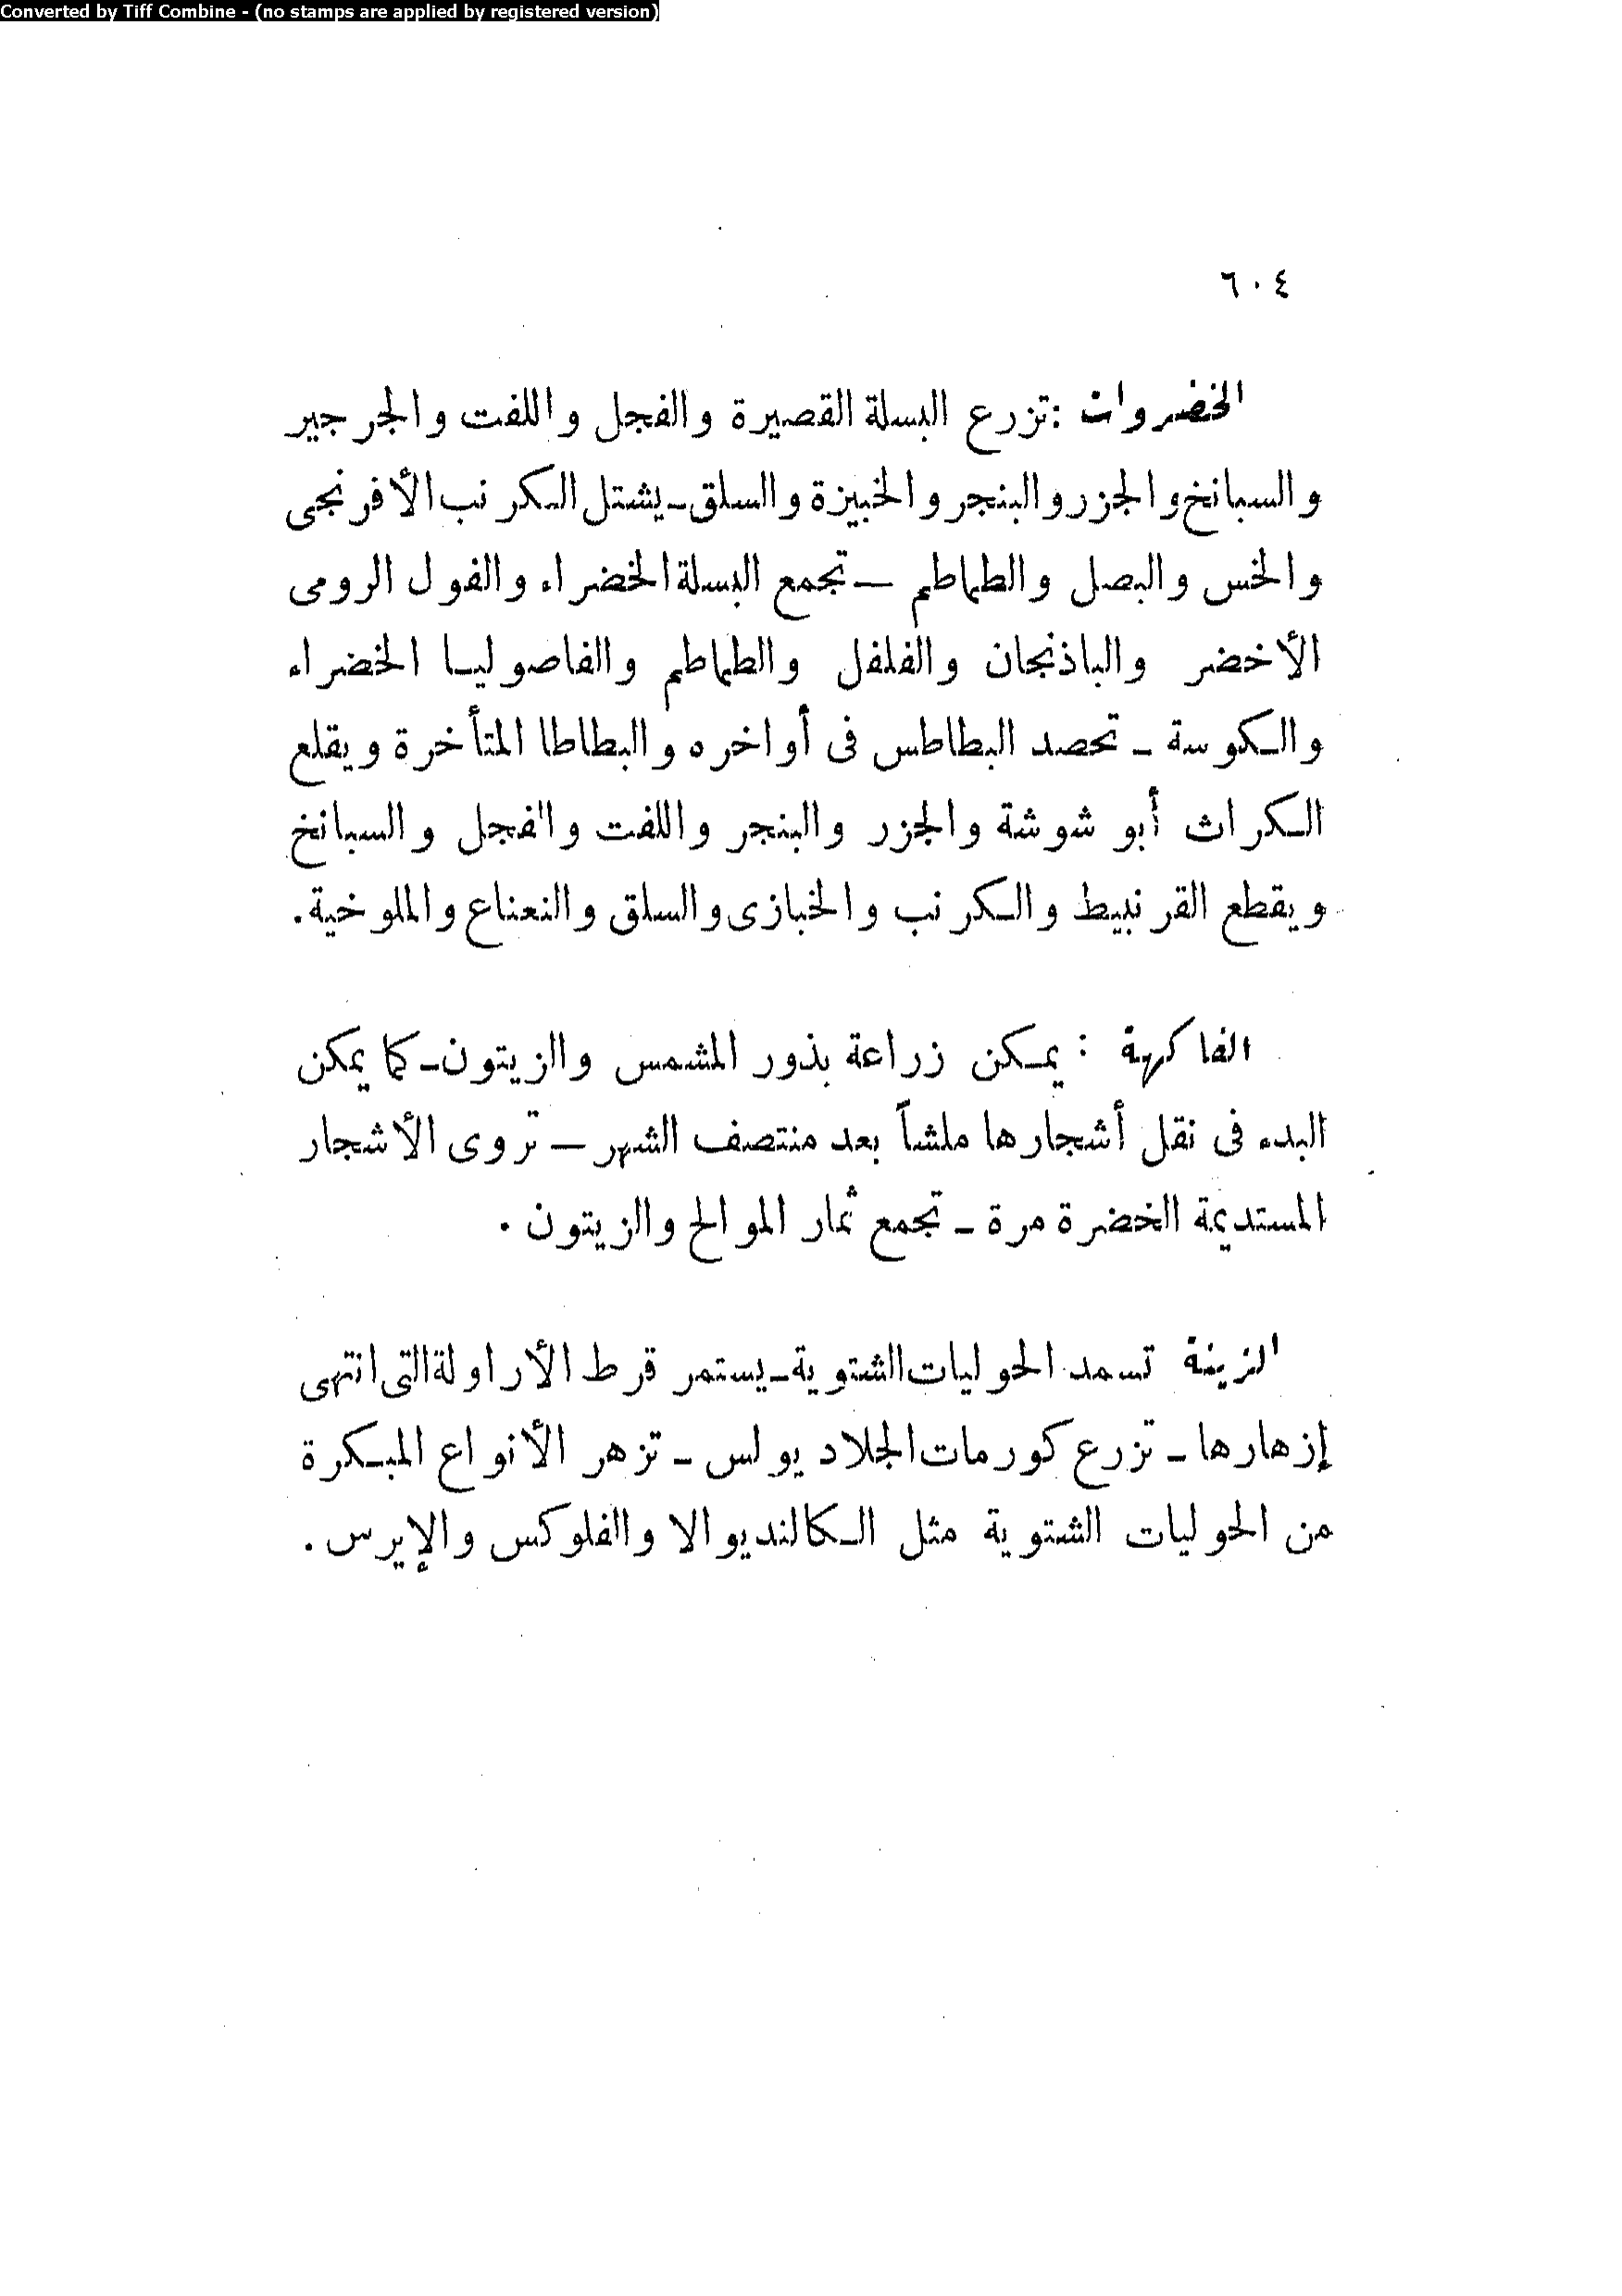 Converted by Tiff Combine - (no stamps are applied by registered version)
٦٠٤
الخضروات : تزرع البسلة القصيرة والفجل واللفت والجرجير
والسبانخ والجزر والبنجر والخبيزة والسلق ـ يشتل الكرنب الأفرنجى
والخس والبصل والطماطم ــ تجمع البسلة الخضراء والفول الرومى
الأخضر والباذنجان والفلفل والطماطم والفاصوليا الخضراء
والكوسة ـ تحصد البطاطس فى أواخره والبطاطا المتأخرة ويقلع
الكراث أبو شوشة والجزر والبنجر واللفت والفجل والسبانخ
ويقطع القرنبيط والكرنب والخبازى والسلق والنعناع والملوخية.
الفاكهة : يمكن زراعة بذور المشمس والزيتون ـ كما يمكن
البدء فى نقل أشجارها ملشاً بعد منتصف الشهر ــ تروى الأشجار
المستديمة الخضرة مرة ـ تجمع ثمار الموالح والزيتون .
الزينة تسمد الحوليات الشتوية ـ يستمر قرط الأراولة التى انتهى
إزهارها ـ تزرع كورمات الجلاديولس ـ تزهر الأنواع المبكرة
من الحوليات الشتوية مثل الكالنديوالا والفلوكس والإيرس .